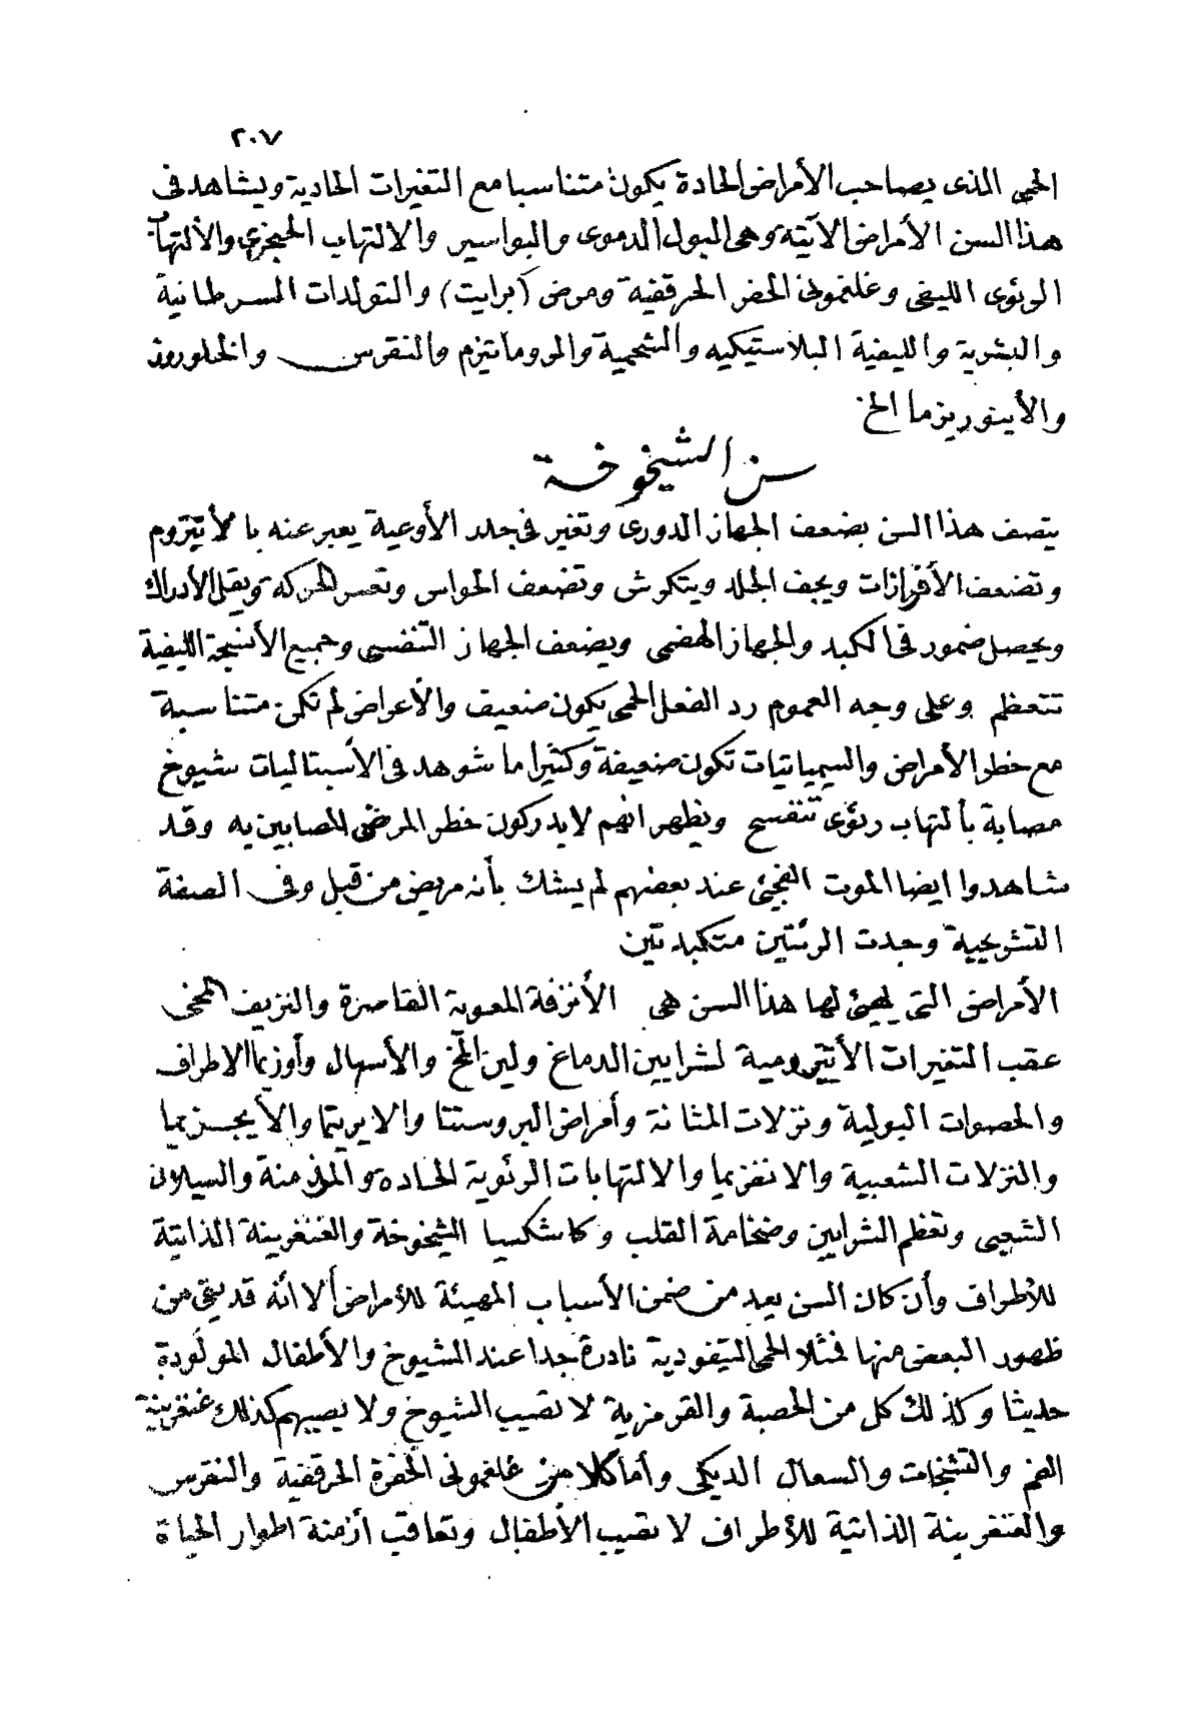 ٢٠٧
الحمى الذى يصاحب الأمراض الحادة يكون متناسبا مع التغيرات المادية ويشاهد فى
هذا السن الأمراض الآتية وهى البول الدموى والبواسير والالتهاب الحنجرى والألتهاب
الرئوى الليفى وغلغمونى الحفر الحرقفية ومرض (برايت) والتولدات السرطانية
والبشرية والليفية البلاستيكيه والشحمية والروماتيزم والنقرس والخلوروز
والأينوريزما الخ
سن الشيخوخة
يتصف هذا السن بضعف الجهاز الدورى وتغير فى جلد الأوعية يعبر عنه بالأتيروم
وتضعف الأفرازات ويجف الجلد ويتكرش وتضعف الحواس وتعسر الحركه ويقل الأدراك
ويحصل ضمور فى الكبد والجهاز الهضمى ويضعف الجهاز التنفسى وجميع الأنسجة الليفية
تتعظم وعلى وجه العموم رد الفعل الحمى يكون ضعيف والأعراض لم تكن متناسبة
مع خطر الأمراض والسيمباتيات تكون ضعيفة وكثيرا ما شوهد فى الأسبتاليات شيوخ
مصابة بألتهاب رئوى تتفسح ويظهر انهم لايدركون خطر المرض المصابين به وقد
شاهدوا ايضا الموت الفجئى عند بعضهم لم يشك بأنه مريض من قبل وفى الصفة
التشريحية وجدت الرئتين متكبدتين
الأمراض التى يهيئ لها هذا السن هى الأنزفة المعوية القاصرة والنزيف المخى
عقب التغيرات الأتيرومية لشرايين الدماغ ولين المخ والأسهال وأوزيما الاطراف
والحصوات البولية ونزلات المثانة وأمراض البروستتا والايريتما والأيجسزيما
والنزلات الشعبية والانفزيما والالتهابات الرئوية الحاده والمزمنة والسيلان
الشعبى وتعظم الشرايين وضخامة القلب وكاشكسيا الشيخوخة والغنغرينة الذاتية
للأطراف وأن كان السن يعد من ضمن الأسباب المهيئة للأمراض ألا انه قد يقى من
ظهور البعض منها فمثلا الحمى التيفودية نادرة جدا عند الشيوخ والأطفال المولودة
حديثا وكذلك كل من الحصبة والقرمزية لا تصيب الشيوخ ولا يصيبهم كذلك غنغرينة
الفم والتشنجات والسعال الديكى وأما كلا من غلغمونى الحفرة الحرقفية والنقرس
والغنغرينة الذاتية للأطراف لا تصيب الأطفال وتعاقب أزمنة اطوار الحياة